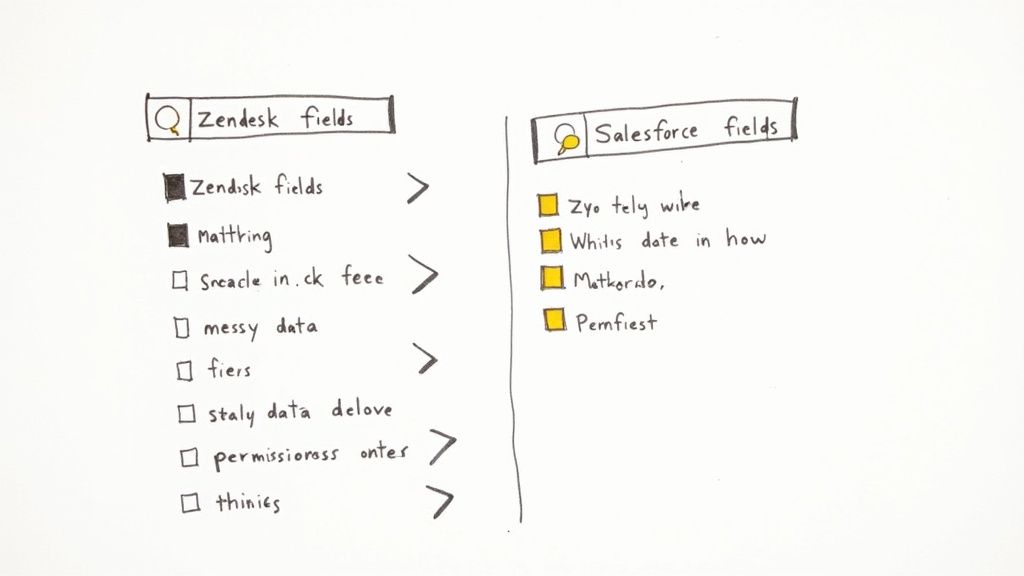 Zendesk fields
Zendisk fields
Mattring
Sneacle in.ck feee
messy data
fiers
staly data delove
permissiorass onter
thinies
Salesforce fields
Zyo tely wike
Whitis date in how
Matkordo,
Pernfiest